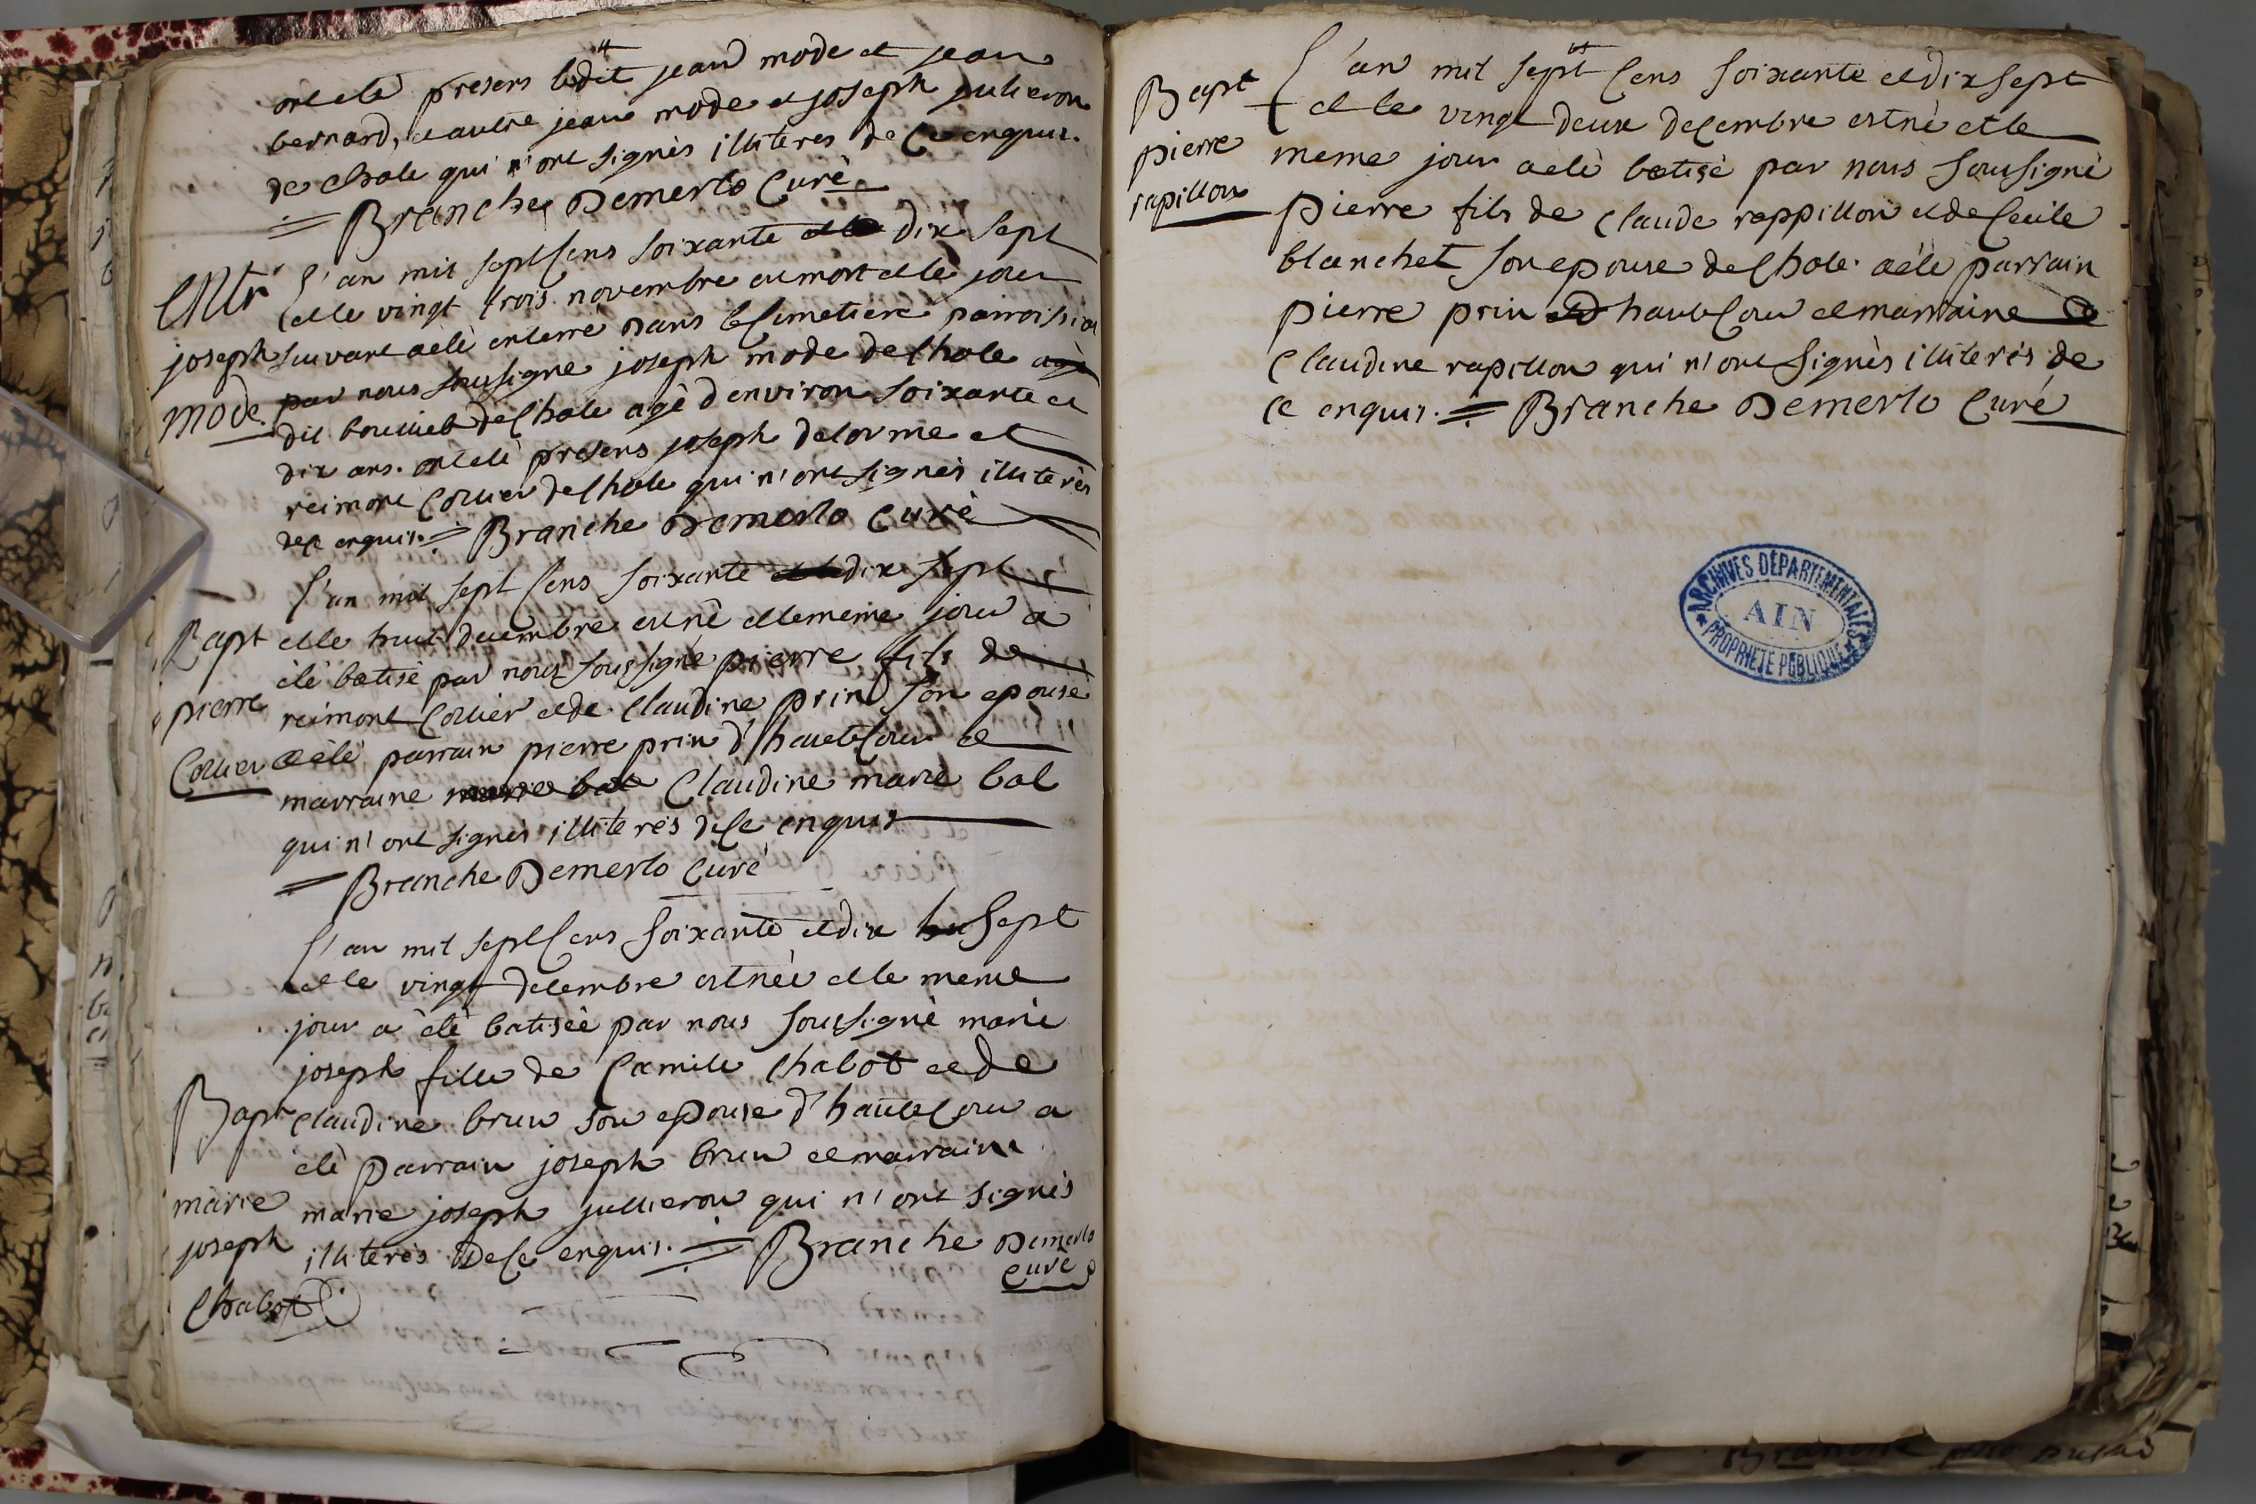 ont eté presens ledit jean mode et jean
bernard, et autre jean mode et joseph julieron
de chole qui n'ont signès illiterès de ce enquis.
Branche Demerlo Curè
L'an mil sept Cens soixante et dix sept
et le vingt trois novembre est mort et le jour
suivant a etè enterrè dans le Cimetiere
par nous soussigne joseph mode de Chole agè
dit de Chole agè d'environ soixante et
dix ans. ont etè presens joseph delorme et
reimont Collier de Chole qui n'ont signès illiterès
de ce enquis. Branche Demerlo Curè
Entr
joseph
mode
L'an mil sept Cens soixante et dix sept
et le huit decembre est nè et le meme jour a
etè batisè par nous soussignè pierre fils de
reimont Collier et de Claudine prin son epouse
a etè parrain pierre prin d'hauteCour et
marraine marie bal Claudine marie bal
qui n'ont signès illiterès de Ce enquis
Branche Demerlo Curè
Bapt
pierre
Collier
L'an mil sept Cens soixante et dix sept
et le vingt decembre est nèe et le meme
jour a etè batisèe par nous soussignè marie
joseph fille de Camille Chabot et de
Claudine brun son epouse d'hauteCour a
etè parrain joseph brun et marraine
marie joseph jullieron qui n'ont signès
illiterès de Ce enquis. Branche Demerlo
Curè
Bapt
marie
joseph
Chabot
L'an mil sept Cens soixante et dix sept
et le vingt deux decembre est nè et le
meme jour a etè batisè par nous soussignè
pierre fils de Claude rappillon et de Cecile
blanchet son epouse de Chole. a etè parrain
pierre prin d'hauteCour et marraine
Claudine rapillon qui n'ont signès illiterès de
Ce enquis. Branche Demerlo Curé
Bapt
pierre
rapillon
ARCHIVES DÉPARTEMENTALES
AIN
PROPRIÉTÉ PUBLIQUE